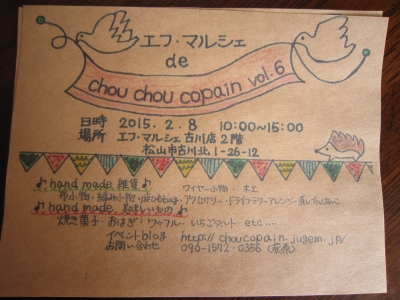 エフ・マルシェ
de
chou chou copain vol.6
日時 2015.2.8 10:00~15:00
場所 エフ・マルシェ古川店2階
松山市古川北1-26-12
♪hand made 雑貨♪ ワイヤー小物・
布小物・編み小物・bag・アクセサリー・ドライフラワーアレンジ・消しゴムはんこ
♪hand made 美味しいもの♪
焼き菓子・おはぎ・ワッフル・いちごタルト etc....
イベントblog http://choucopain.jugem.jp/
お問い合わせ 090-1572-0356